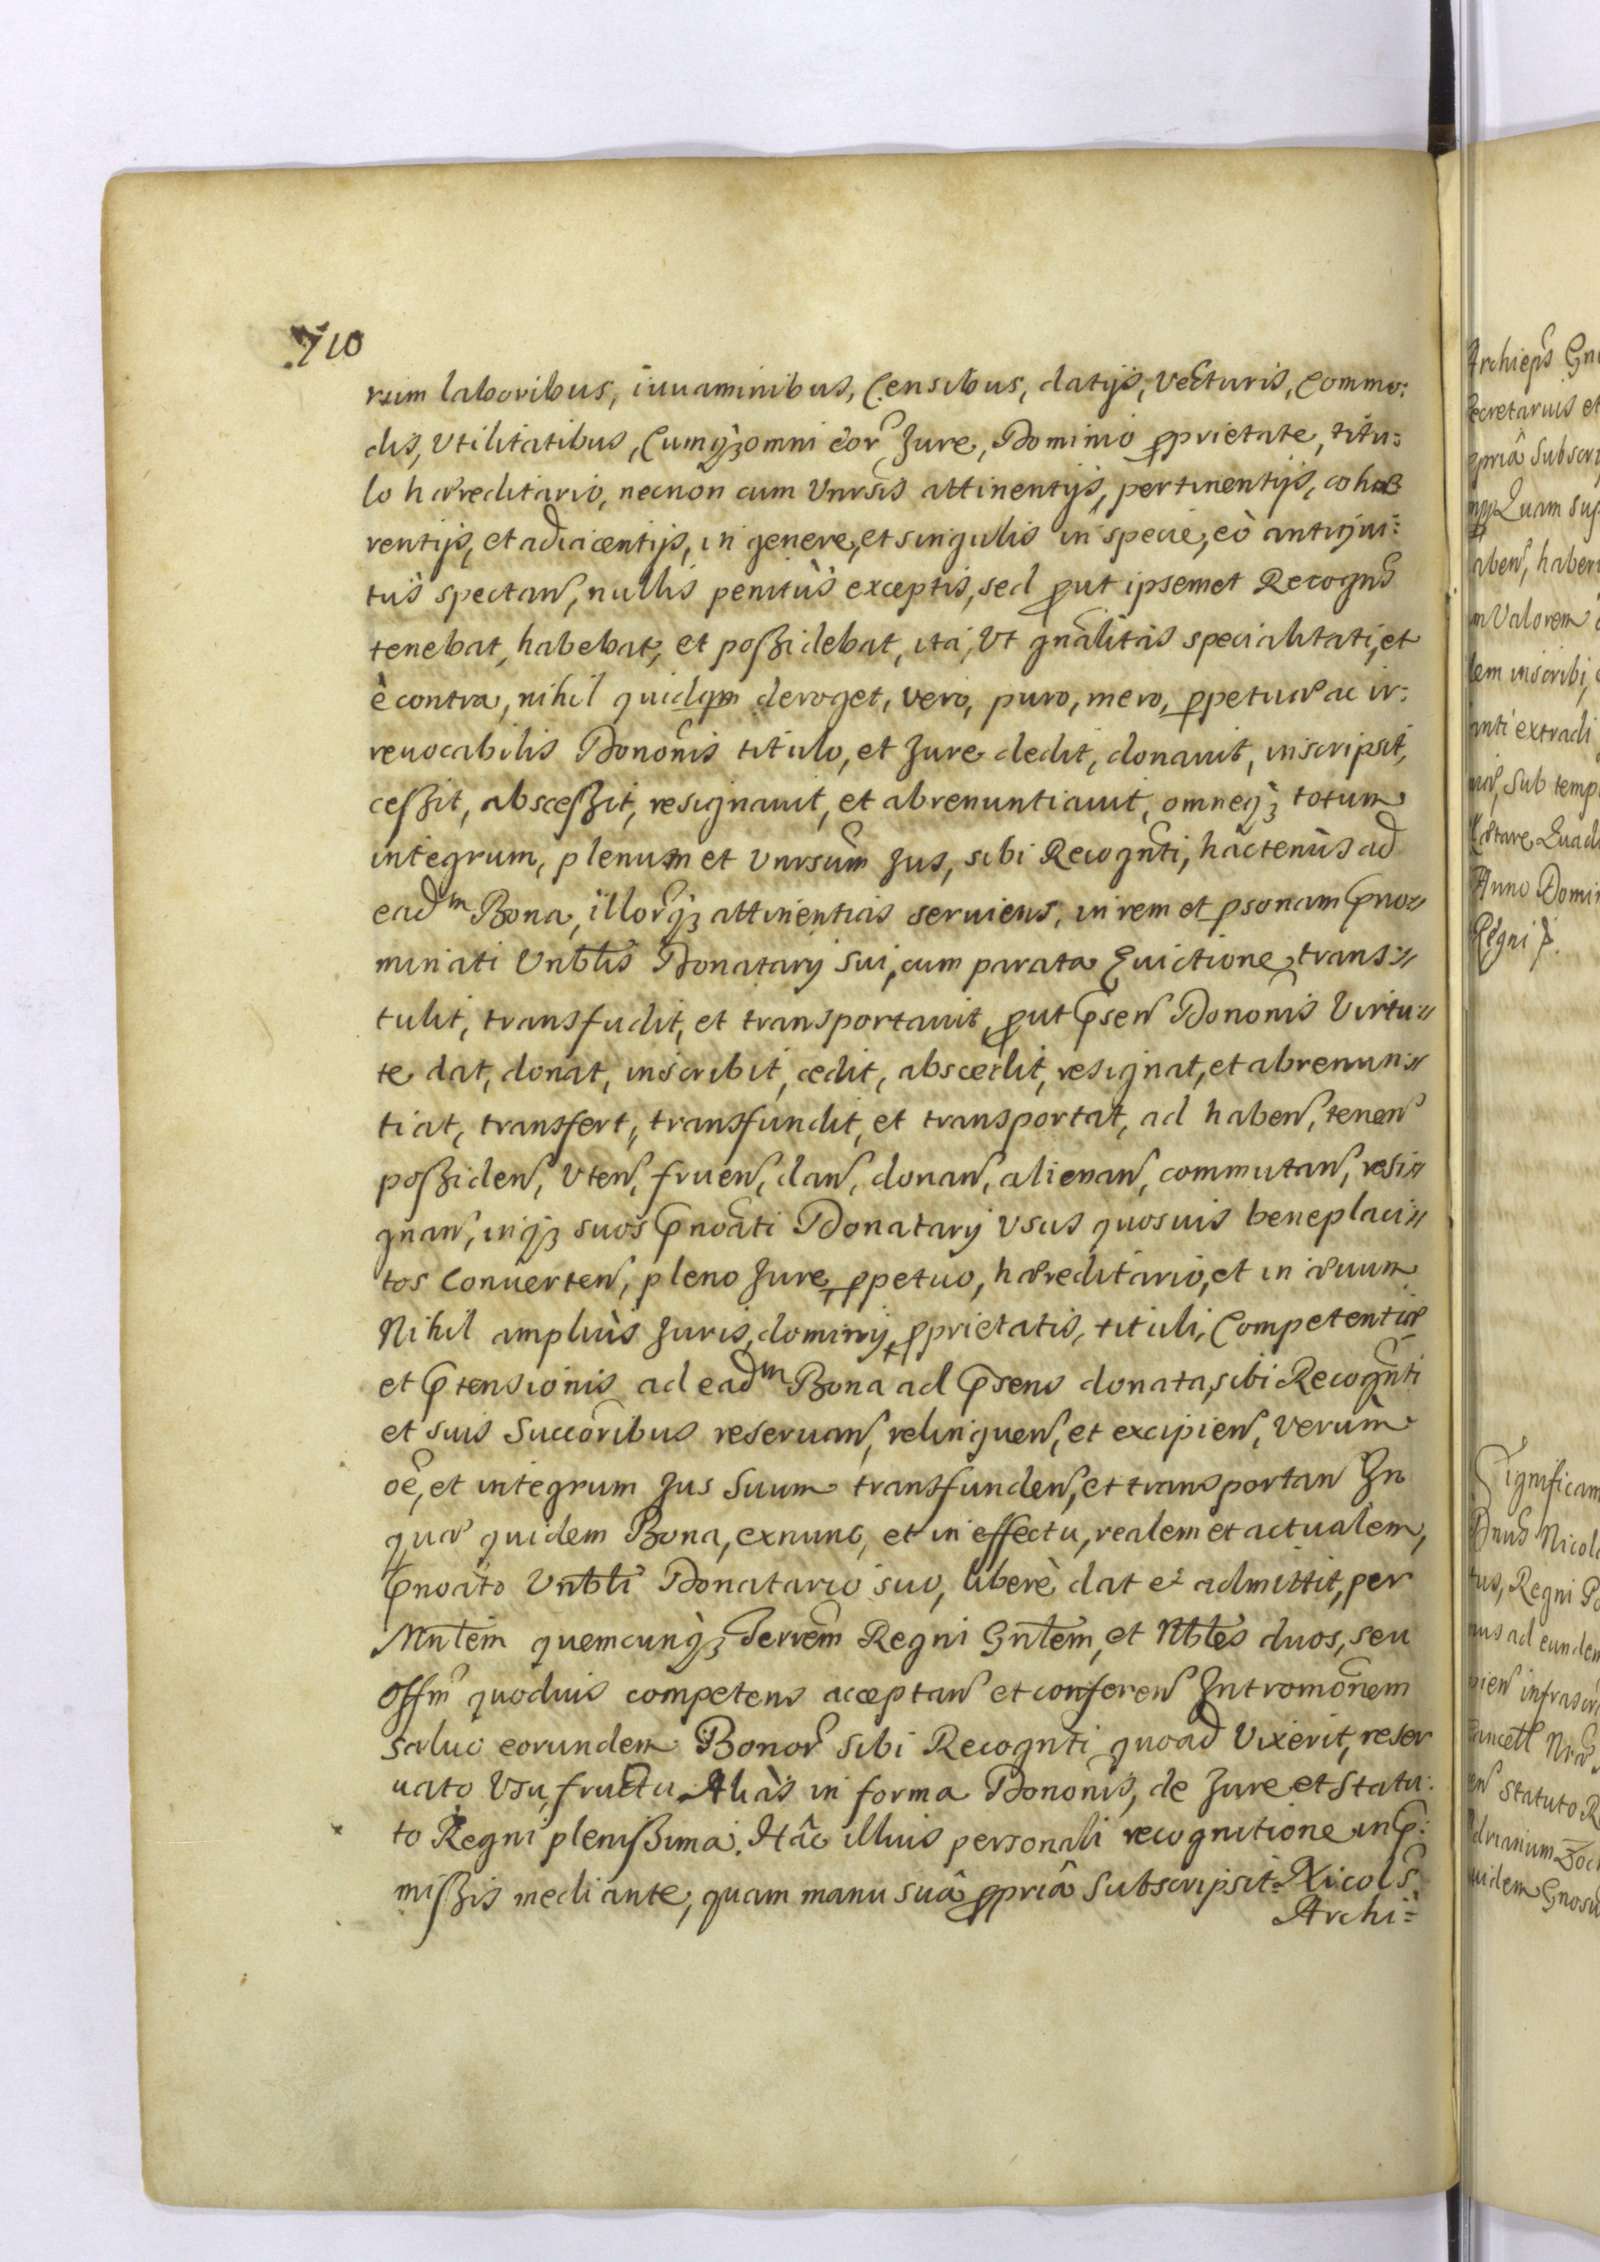 710
rum laboribus, iuuaminibus, Censibus, datijs, vecturis, Commo:
dis, vtilitatibus, Cumq3 omni eor Jure, Dominio pprietate, titu:
lo hæreditario, necnon cum Vnrsis attinentijs, pertinentijs, cohæ
rentijs, et adiacentijs, in genere, et singulis in specie, eò antiqui:
tùs spectan, nullis penitùs exceptis, sed put ipsemet Recogns
tenebat, habebat, et poßidebat, ita, vt gnalitas specialitati, et
è contra, nihil quidqm deroget, vero, puro, mero, ppetuæ ac ir:
reuocabilis Dononis titulo, et Jure dedit, donauit, inscripsit,
ceßit, absceßit, resignauit, et abrenuntiauit, omneq3 totum
integrum, plenum et vnrsum Jus, sibi Recognti, hactenùs ad
eadm Bona, illorq3 attinentias seruiens, in rem et psonam pno=
minati Vnbtis Donatarij sui, cum parata Euictione trans=
tulit, transfudit, et transportauit, put psen Dononis virtu=
te dat, donat, inscribit, cedit, abscedit, resignat, et abrenun=
tiat, transfert, transfundit, et transportat, ad haben, tenen
poßiden, vten, fruen, dan, donan, alienan, commutan, resi=
gnan, inq3 suos pnoati Donatarij vsus quosuis beneplaci=
tos Conuerten, pleno Jure, ppetuo, hæreditario, et in æuum
Nihil ampliùs Juris, dominij, pprietatis, tituli, Competentiæ
et ptensionis ad eadm Bona ad psens donata, sibi Recognti
et suis Succoribus reseruan, relinquen, et excipien, verùm
oe, et integrum Jus Suum transfunden, et transportan Jn
quæ quidem Bona, exnunc, et in effectu, realem et actualem,
pnoato Vnbtli Donatario suo, liberè dat et admittit, per
Mntem quemcunq3 Terrem Regni Gntem, et Nbtes duos, seu
Offm quoduis competens acceptan et conferen Jntromonem
saluo eorundem Bonor sibi Recognti quoad vixerit, reser
uato Vsu, fructu. Aliàs in forma Dononis, de Jure et Statu:
to Regni plenißima. Hâc illius personali recognitione in p:
mißis mediante, quam manu suâ ppriâ Subscripsit. Nicols
Archi=
Archieps Gn
ecretarius et
ppriâ Subscri
Quam sup
aben, haben
m Valorem
dem inscribi,
extradi
Sub temp
Anno Domin
Regni p.
Significam
Dnus Nicola
tus, Regni Po
nus ad eundem
pien infrascr
Statuto R
drianum Zoc
uidem Gnosu